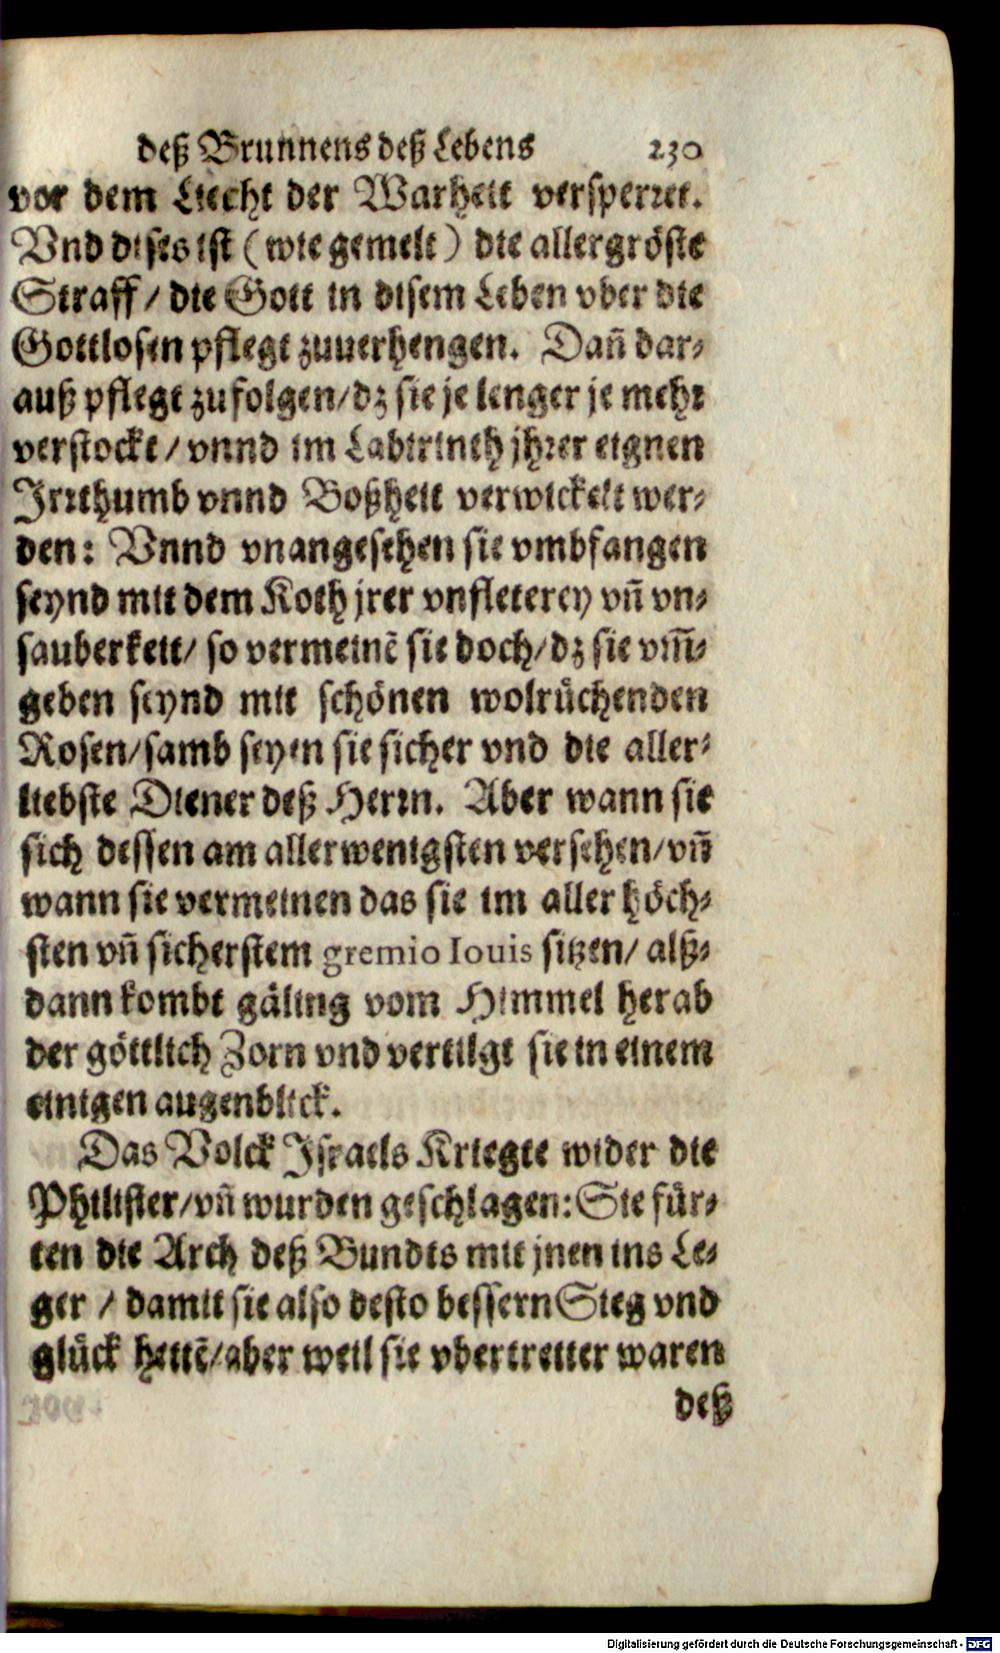 deß Brunnens deß Lebens 230
vor dem Liecht der Warheit versperret.
Vnd dises ist (wie gemelt) die allergröste
Straff / die Gott in disem Leben vber die
Gottlosen pflegt zuuerhengen. Dañ dar-
auß pflegt zufolgen/dz sie je lenger je mehr
verstockt / vnnd im Labirinth jhrer eignen
Irrthumb vnnd Boßheit verwickelt wer-
den: Vnnd vnangesehen sie vmbfangen
seynd mit dem Koth jrer vnfleterey vñ vn-
sauberkeit/ so vermeinẽ sie doch/dz sie vm̃-
geben seynd mit schönen wolrüchenden
Rosen/samb seyen sie sicher vnd die aller-
liebste Diener deß Herrn. Aber wann sie
sich dessen am allerwenigsten versehen/vñ
wann sie vermeinen das sie im aller höch-
sten vñ sicherstem gremio Iouis sitzen/ alß-
dann kombt gäling vom Himmel herab
der göttlich Zorn vnd vertilgt sie in einem
einigen augenblick.
Das Volck Israels Kriegte wider die
Philister/vñ wurden geschlagen: Sie für-
ten die Arch deß Bundts mit jnen ins Le-
ger / damit sie also desto bessern Sieg vnd
glück hettẽ/aber weil sie vbertretter waren
deß
Digitalisierung gefördert durch die Deutsche Forschungsgemeinschaft - DFG